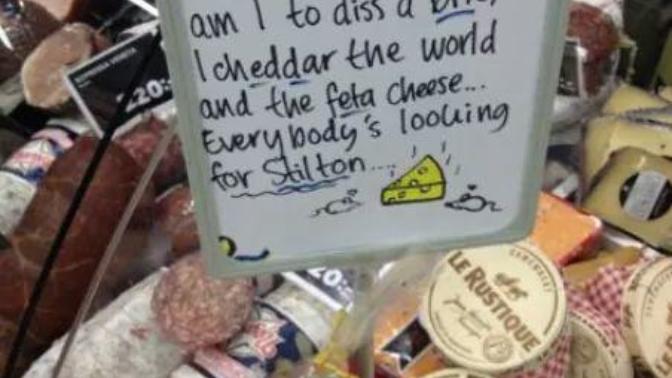 am I to diss a brie,
I cheddar the world
and the feta cheese...
Everybody's looking
for Stilton....
£20:
£20:
LE RUSTIQUE
CAMEMBERT